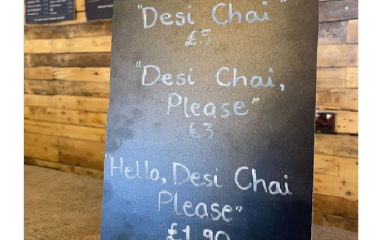 "Desi Chai"
£5
"Desi Chai,
Please"
£3
"Hello, Desi Chai
Please"
£1.90